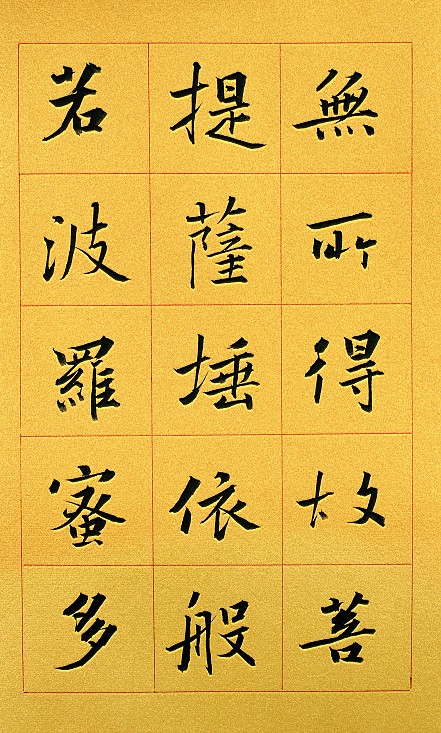 無所得故菩
提薩埵依般
若波羅蜜多